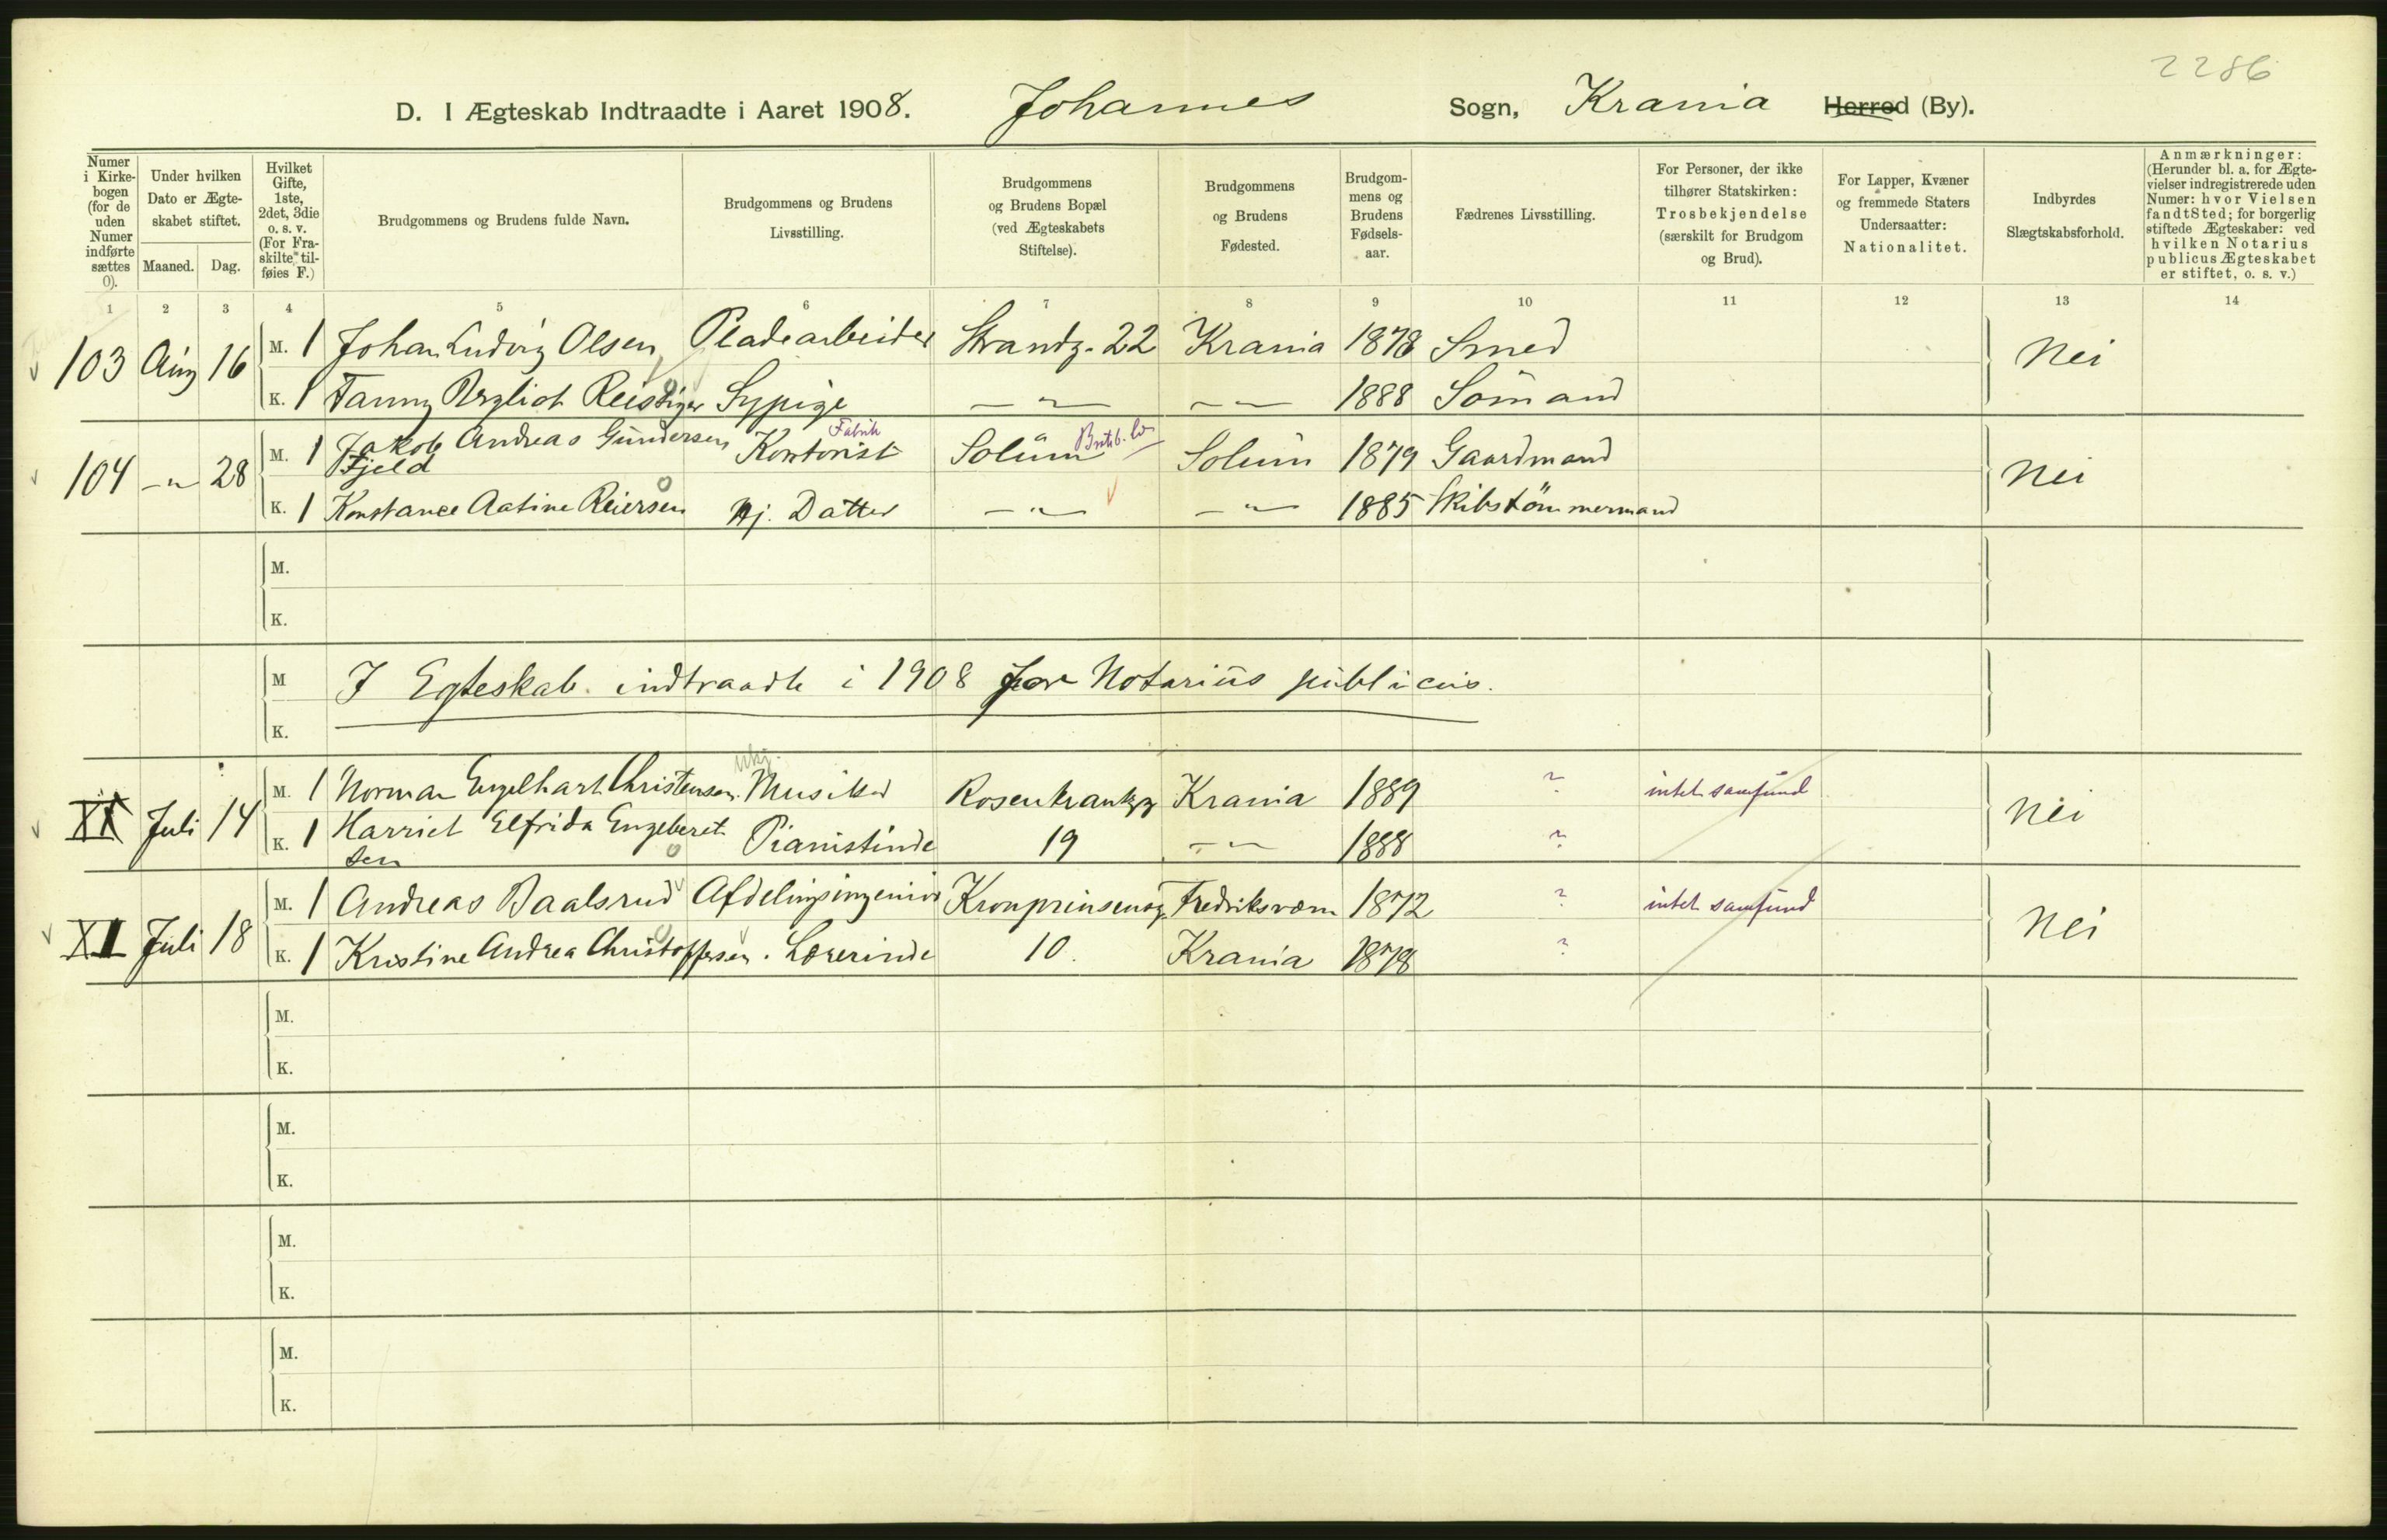 2286
D. I Ægteskab Indtraadte i Aaret 1908. Johannes Sogn, Krania Herred (By).
Numer i Kirkebogen (for de uden Numer indførte sættes 0).
Under hvilken Dato er Ægteskabet stiftet.
Maaned. Dag.
Hvilket Gifte, 1ste, 2det, 3die o. s. v. (For Fraskilte tilføies F.)
Brudgommens og Brudens fulde Navn.
Brudgommens og Brudens Livsstilling.
Brudgommens og Brudens Bopæl (ved Ægteskabets Stiftelse).
Brudgommens og Brudens Fødested.
Brudgommens og Brudens Fødselsaar.
Fædrenes Livsstilling.
For Personer, der ikke tilhører Statskirken: Trosbekjendelse (særskilt for Brudgom og Brud).
For Lapper, Kvæner og fremmede Staters Undersaatter: Nationalitet.
Indbyrdes Slægtskabsforhold.
Anmærkninger: (Herunder bl. a. for Ægtevielser indregistrerede uden Numer: hvor Vielsen fandt Sted; for borgerlig stiftede Ægteskaber: ved hvilken Notarius publicus Ægteskabet er stiftet, o. s. v.)
1 2 3 4 5 6 7 8 9 10 11 12 13 14
103 Aug 16 M. 1 Johan Ludvig Olsen Pladearbeider Strandg. 22 Krania 1878 Smed Nei
K. 1 Fanny Sypige —"— —"— 1888 Sömand
104 —"— 28 M. 1 Jakob Andreas Gundersen Fjeld Fabrik Kontorist Solum Solum 1879 Gaardmand Nei
K. 1 Konstance Aatine Reiersen Hj. Datter —"— —"— 1885 Skibstömmermand
M.
K.
M I Egteskab indtraadte i 1908 for Notarius publicus.
K.
XI Juli 14 M. 1 Norman Engelhart Christensen Musiker Rosenkrantzg Krania 1889 ? intet samfund Nei
K. 1 Harriet Elfrida Engebretsen Pianistinde 19 —"— 1888 ?
XII Juli 18 M. 1 Andreas Baalsrud Afdelingsingeniør Kronprinsensg. Fredriksværn 1872 ? intet samfund Nei
K. 1 Kristine Andrea Christoffersen. Lærerinde 10. Krania 1878 ?
M.
K.
M.
K.
M.
K.
M.
K.